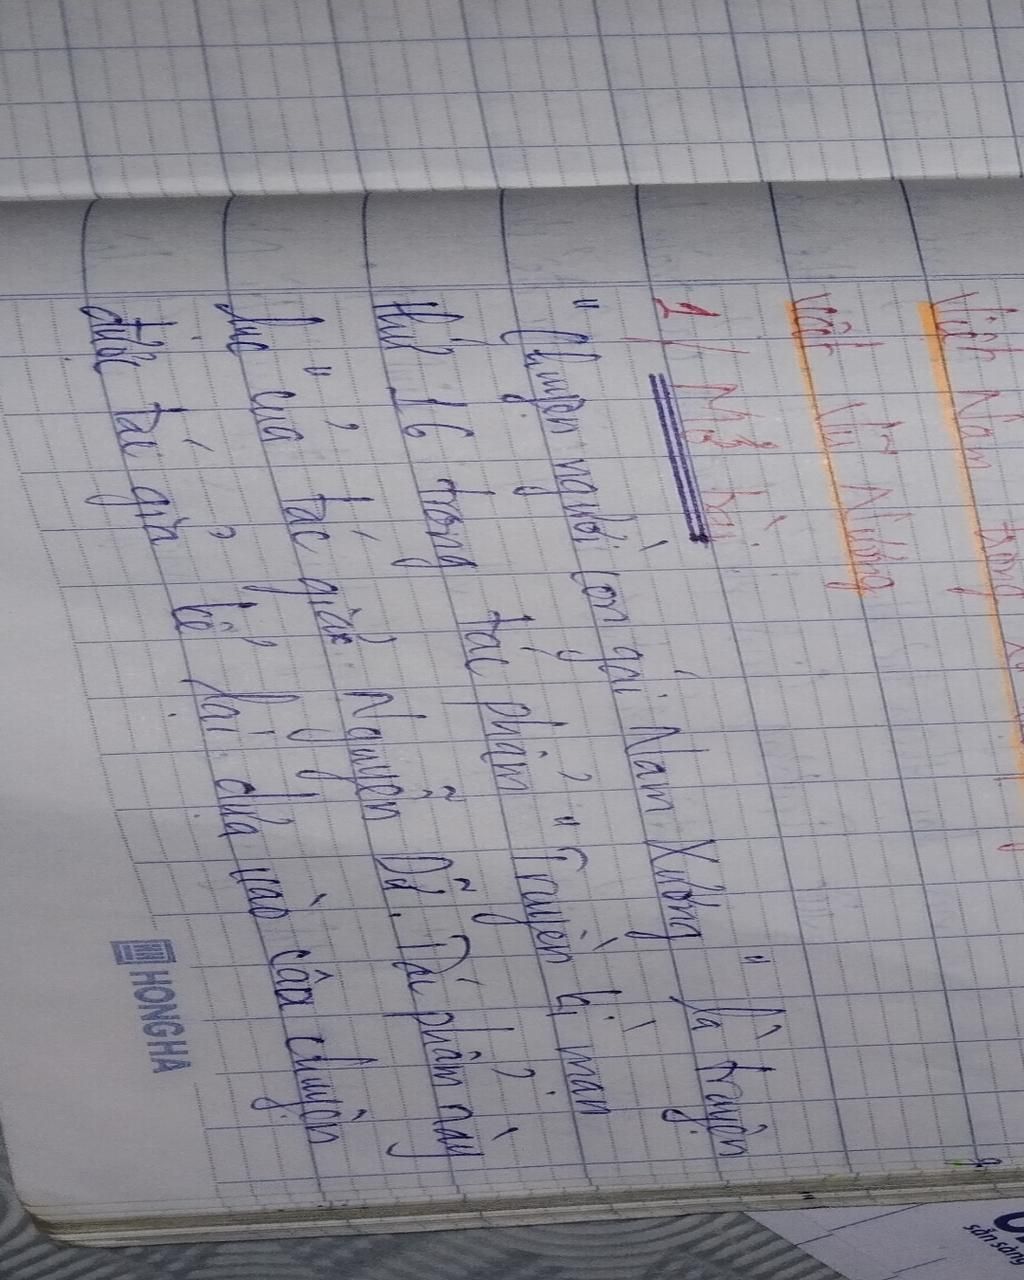 Việt Nam trong xã
Viết Vũ Nương
1/ Mở bài
" Chuyện người con gái Nam Xương " là truyện
thứ 16 trong tác phẩm " Truyền kì mạn
lục " của tác giả Nguyễn Dữ. Tác phẩm này
được tác giả kể lại dựa vào câu chuyện
HONG HA
sẵn sàng